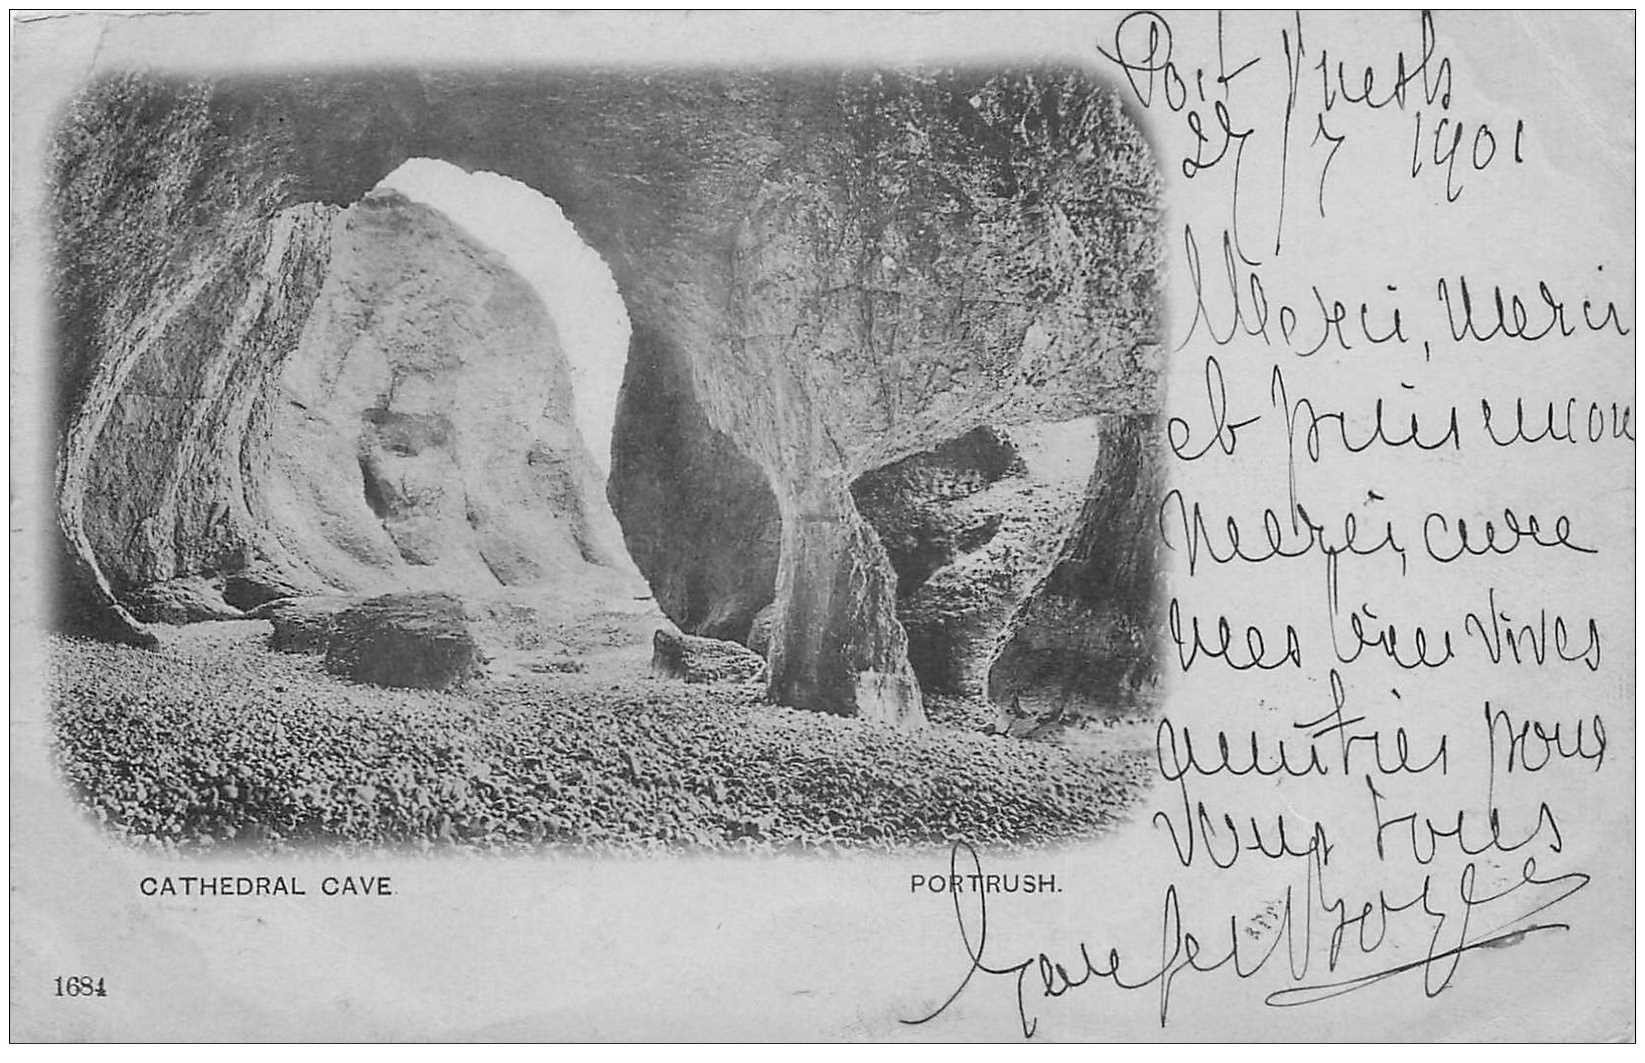 Port rush
27/7 1901
Merci, merci
et puis encore
merci, avec
mes bien vives
amitiés pour
vous tous
CATHEDRAL CAVE.
PORTRUSH.
1684